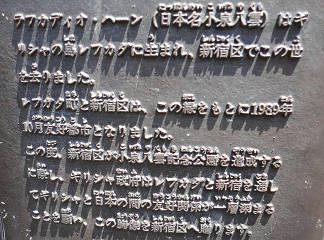 ラフカディオ・ハーン（日本名小泉八雲）はギ
リシャの島レフカダに生まれ、新宿区でこの世
を去りました。
レフカダ町と新宿区は、この縁をもとに1989年
10月友好都市となりました。
この度、新宿区が小泉八雲記念公園を造成する
に際し、ギリシャ政府はレフカダと新宿を通し
てギリシャと日本の間の友好関係が一層深まる
ことを願い、この胸像を新宿区へ贈ります。